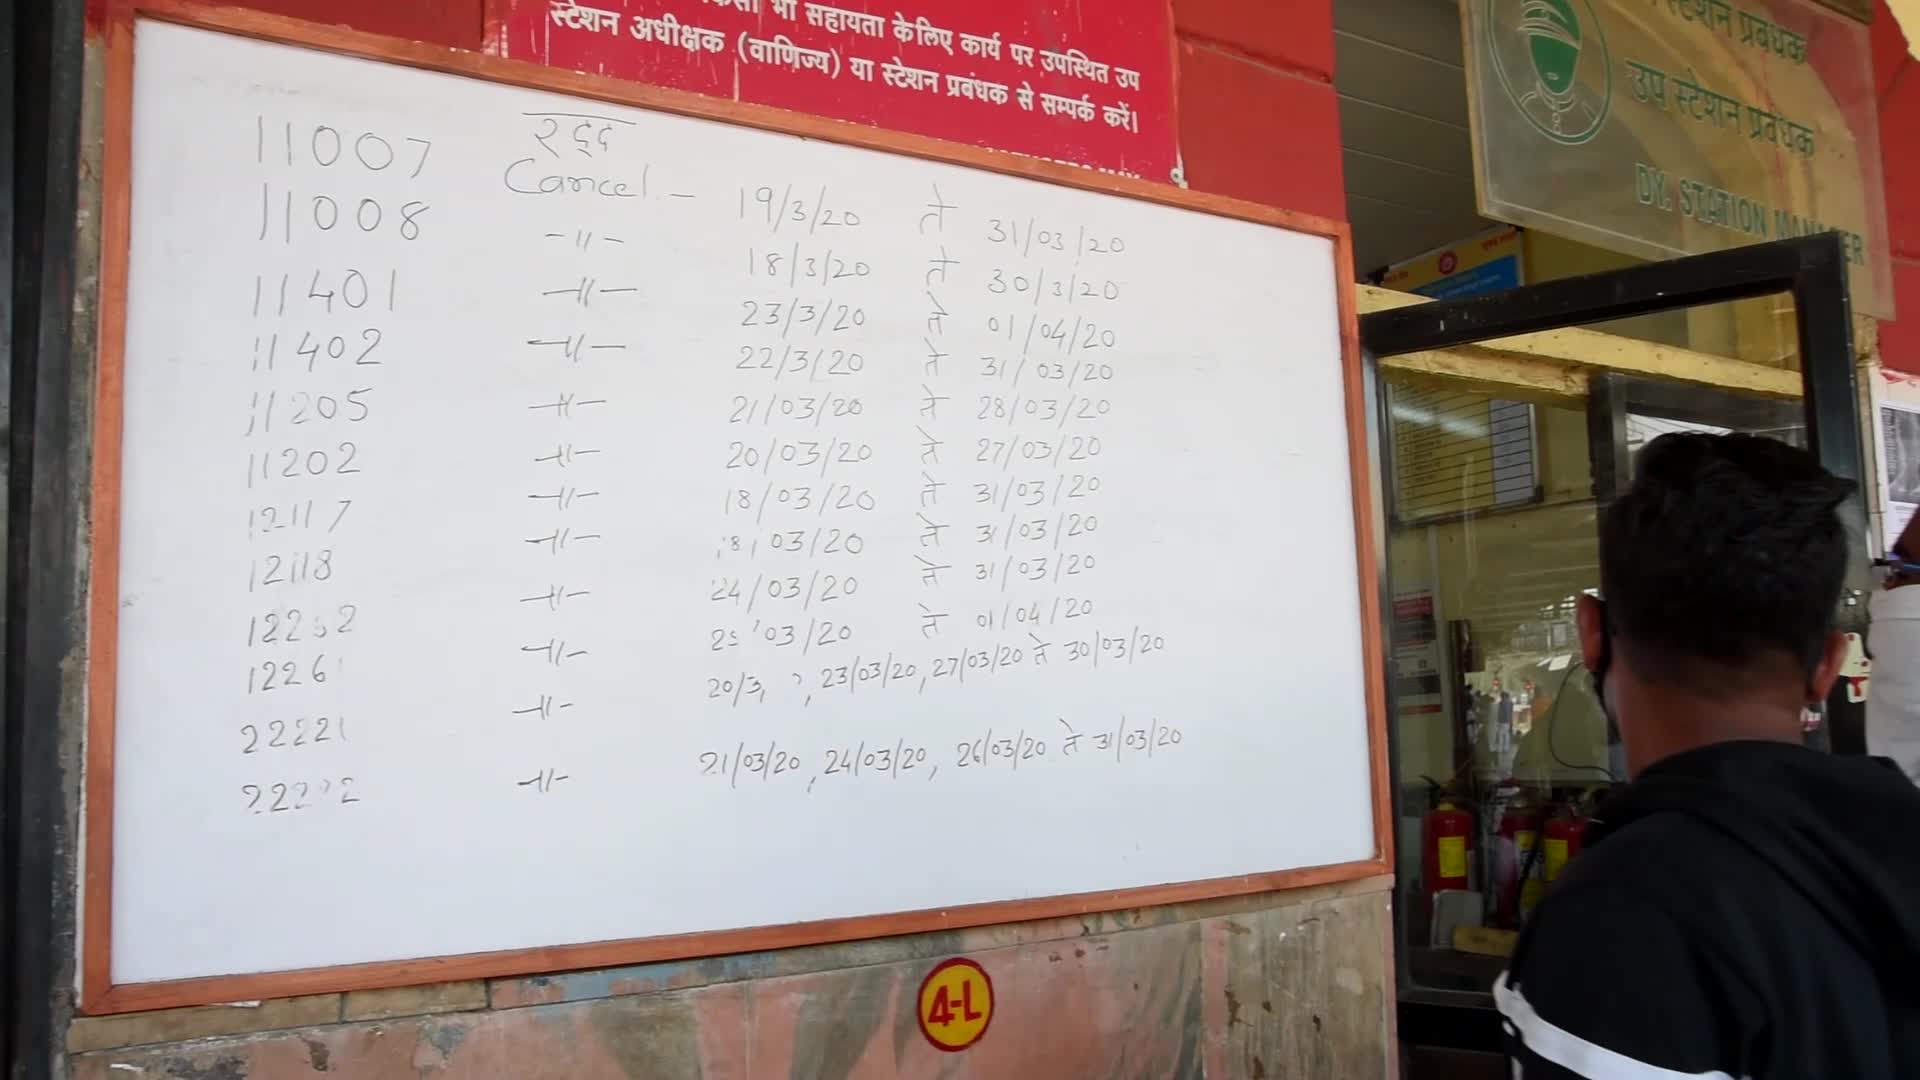 भी सहायता के लिए कार्य पर उपस्थित उप
स्टेशन अधीक्षक (वाणिज्य) या स्टेशन प्रबंधक से सम्पर्क करें।
स्टेशन प्रबंधक
उप स्टेशन प्रबंधक
DY. STATION MANAGER
रद्द
11007 Cancel - 19/3/20 ते 31/03/20
11008 -〃- 18/3/20 ते 30/3/20
11401 -〃- 23/3/20 ते 01/04/20
11402 -〃- 22/3/20 ते 31/03/20
11205 -〃- 21/03/20 ते 28/03/20
11202 -〃- 20/03/20 ते 27/03/20
12117 -〃- 18/03/20 ते 31/03/20
12118 -〃- 18/03/20 ते 31/03/20
-〃- 24/03/20 ते 31/03/20
-〃- ते 01/04/20
22221 -〃- 23/03/20, 27/03/20 ते 30/03/20
-〃- 21/03/20, 24/03/20, 26/03/20 ते 31/03/20
4-L